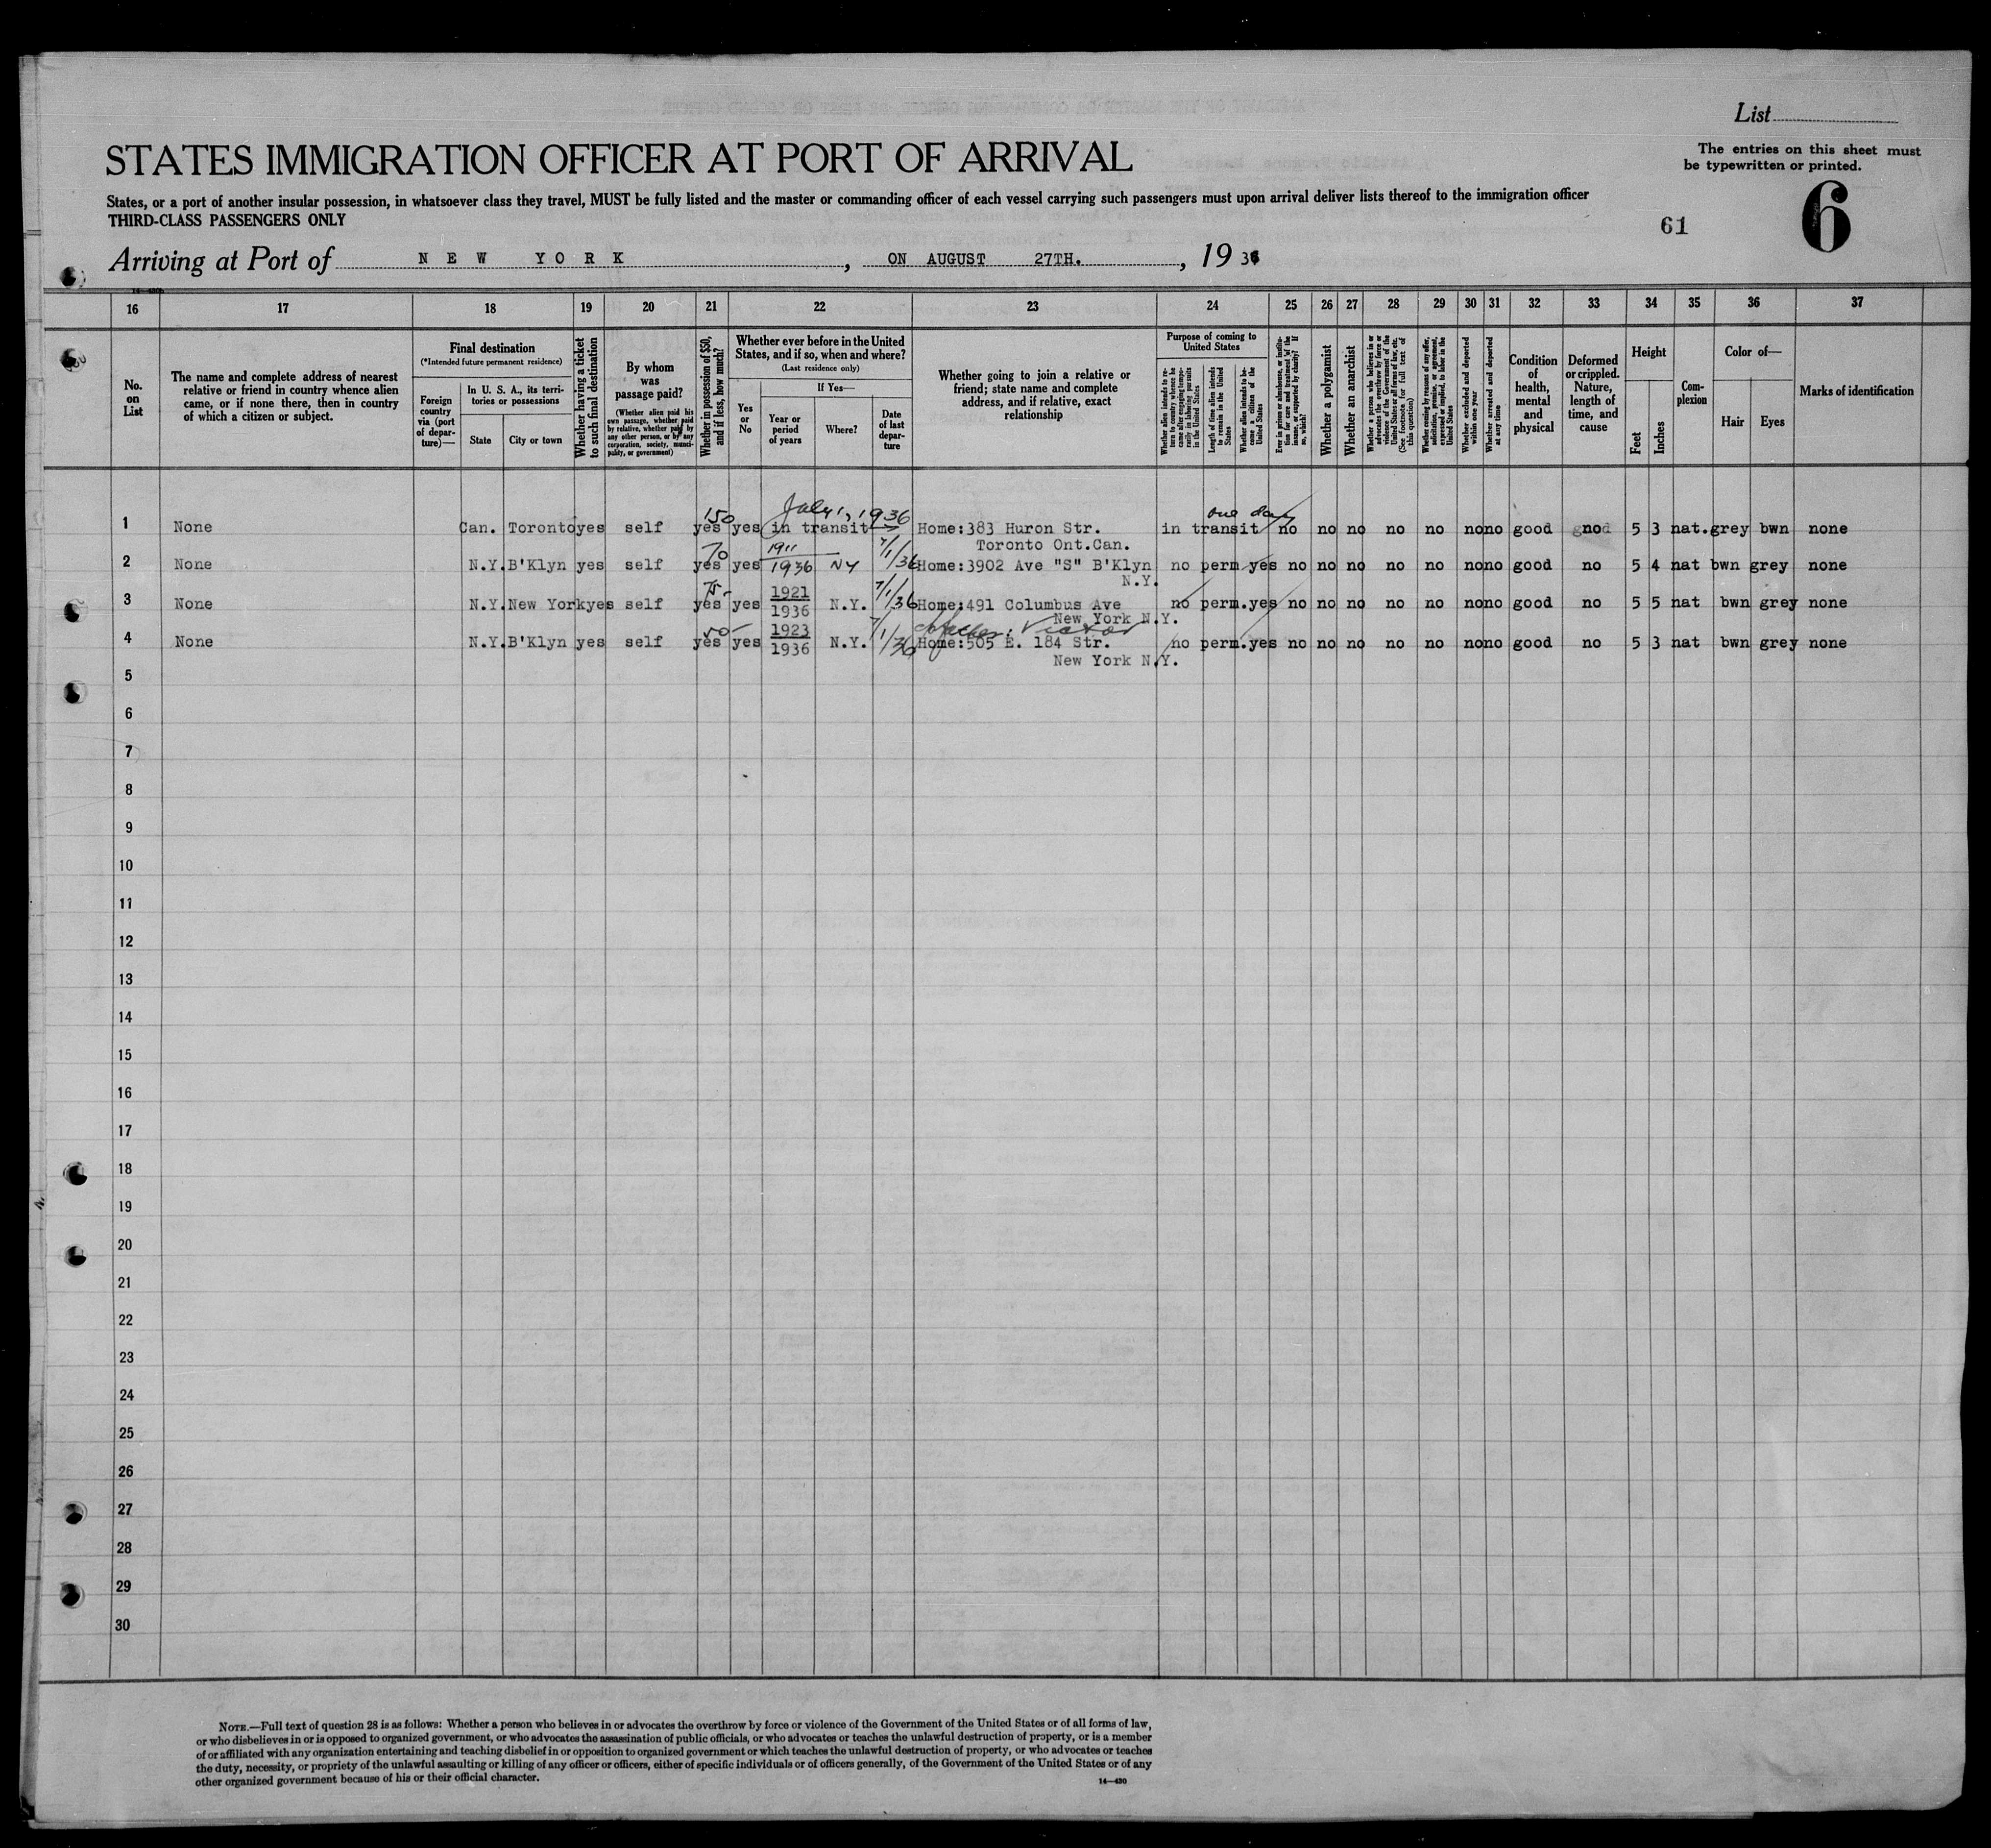 List
STATES IMMIGRATION OFFICER AT PORT OF ARRIVAL
The entries on this sheet must
be typewritten or printed.
States, or a port of another insular possession, in whatsoever class they travel, MUST be fully listed and the master or commanding officer of each vessel carrying such passengers must upon arrival deliver lists thereof to the immigration officer
THIRD-CLASS PASSENGERS ONLY
61
6
Arriving at Port of NEW YORK, ON AUGUST 27TH., 1936
16 17 18 19 20 21 22 23 24 25 26 27 28 29 30 31 32 33 34 35 36 37
No. on List
The name and complete address of nearest
relative or friend in country whence alien
came, or if none there, then in country
of which a citizen or subject.
Final destination
(*Intended future permanent residence)
Foreign country via (port of departure)—
In U. S. A., its territories or possessions
State
City or town
Whether having a ticket to such final destination
By whom was passage paid?
(Whether alien paid his own passage, whether paid by relative, whether paid by any other person, or by any corporation, society, municipality, or government)
Whether in possession of $50, and if less, how much?
Whether ever before in the United States, and if so, when and where?
(Last residence only)
Yes or No
If Yes—
Year or period of years
Where?
Date of last departure
Whether going to join a relative or
friend; state name and complete
address, and if relative, exact
relationship
Purpose of coming to United States
Whether alien intends to return to country whence he came after engaging temporarily in laboring pursuits in the United States
Length of time alien intends to remain in the United States
Whether alien intends to become a citizen of the United States
Ever in prison or almshouse, or institution for care and treatment of the insane, or supported by charity? If so, which?
Whether a polygamist
Whether an anarchist
Whether a person who believes in or advocates the overthrow by force or violence of the Government of the United States or all forms of law, etc. (See footnote for full text of this question)
Whether coming by reasons of any offer, solicitation, promise, or agreement, expressed or implied, to labor in the United States
Whether excluded and deported within one year
Whether arrested and deported at any time
Condition of health, mental and physical
Deformed or crippled. Nature, length of time, and cause
Height
Feet
Inches
Complexion
Color of—
Hair
Eyes
Marks of identification
150 July 1, 1936 one day
1 None Can. Toronto yes self yes yes in transit Home:383 Huron Str. in transit no no no no no no no good no 5 3 nat. grey bwn none
Toronto Ont.Can.
70 1911 7/1/36
2 None N.Y. B'Klyn yes self yes yes 1936 NY Home:3902 Ave "S" B'Klyn no perm yes no no no no no no no good no 5 4 nat bwn grey none
N.Y.
75- 1921 7/1/36
3 None N.Y. New York yes self yes yes 1936 N.Y. Home:491 Columbus Ave no perm. yes no no no no no no no good no 5 5 nat bwn grey none
New York N.Y.
50- 1923 7/1/36 Father: Victor
4 None N.Y. B'Klyn yes self yes yes 1936 N.Y. Home:505 E. 184 Str. no perm. yes no no no no no no no good no 5 3 nat bwn grey none
New York N.Y.
5
6
7
8
9
10
11
12
13
14
15
16
17
18
19
20
21
22
23
24
25
26
27
28
29
30
NOTE.—Full text of question 28 is as follows: Whether a person who believes in or advocates the overthrow by force or violence of the Government of the United States or of all forms of law,
or who disbelieves in or is opposed to organized government, or who advocates the assassination of public officials, or who advocates or teaches the unlawful destruction of property, or is a member
of or affiliated with any organization entertaining and teaching disbelief in or opposition to organized government or which teaches the unlawful destruction of property, or who advocates or teaches
the duty, necessity, or propriety of the unlawful assaulting or killing of any officer or officers, either of specific individuals or of officers generally, of the Government of the United States or of any
other organized government because of his or their official character.
14—430